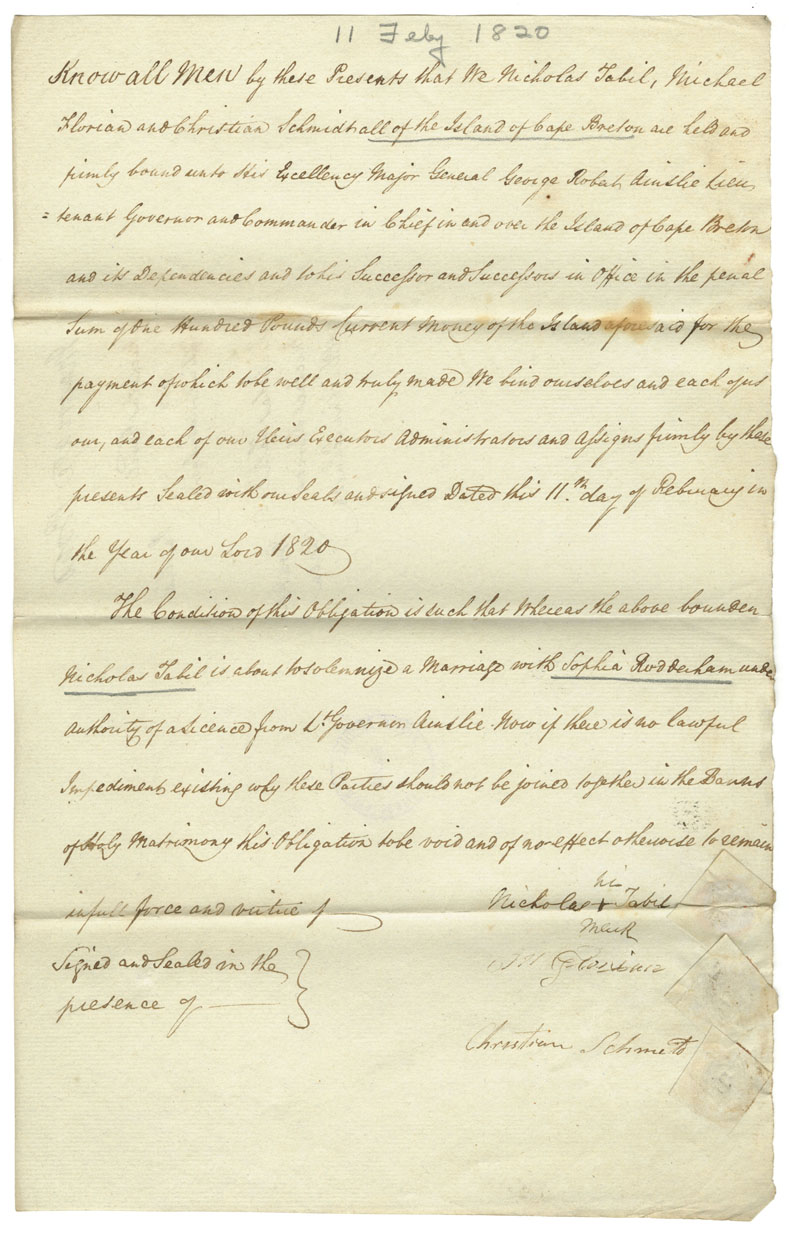 11 Feby 1820
Know all Men by these Presents that We Nicholas Tabil, Michael
Florian and Christian Schmidt all of the Island of Cape Breton are held and
firmly bound unto His Excellency Major General George Robert Ainslie Lieu
=tenant Governor and Commander in Chief in and over the Island of Cape Breton
and its Dependencies and to his Successor and Successors in Office in the penal
Sum of One Hundred Pounds Current Money of the Island aforesaid for the
payment of which to be well and truly made We bind ourselves and each of us
our, and each of our Heirs Executors Administrators and Assigns firmly by these
presents Sealed with our Seals and signed Dated this 11.th day of February in
the Year of our Lord 1820
The Condition of this Obligation is such that Whereas the above bounden
Nicholas Tabil is about to solemnize a Marriage with Sophia Rodderham under
Authority of a Licence from Lt Governor Ainslie Now if there is no lawful
Impediment existing why these Parties should not be joined together in the Banns
of Holy Matrimony this Obligation to be void and of no effect otherwise to remain
in full force and virtue
his
Nicholas + Tabil
Mark
Signed and Sealed in the
presence of
Christian Schmidt